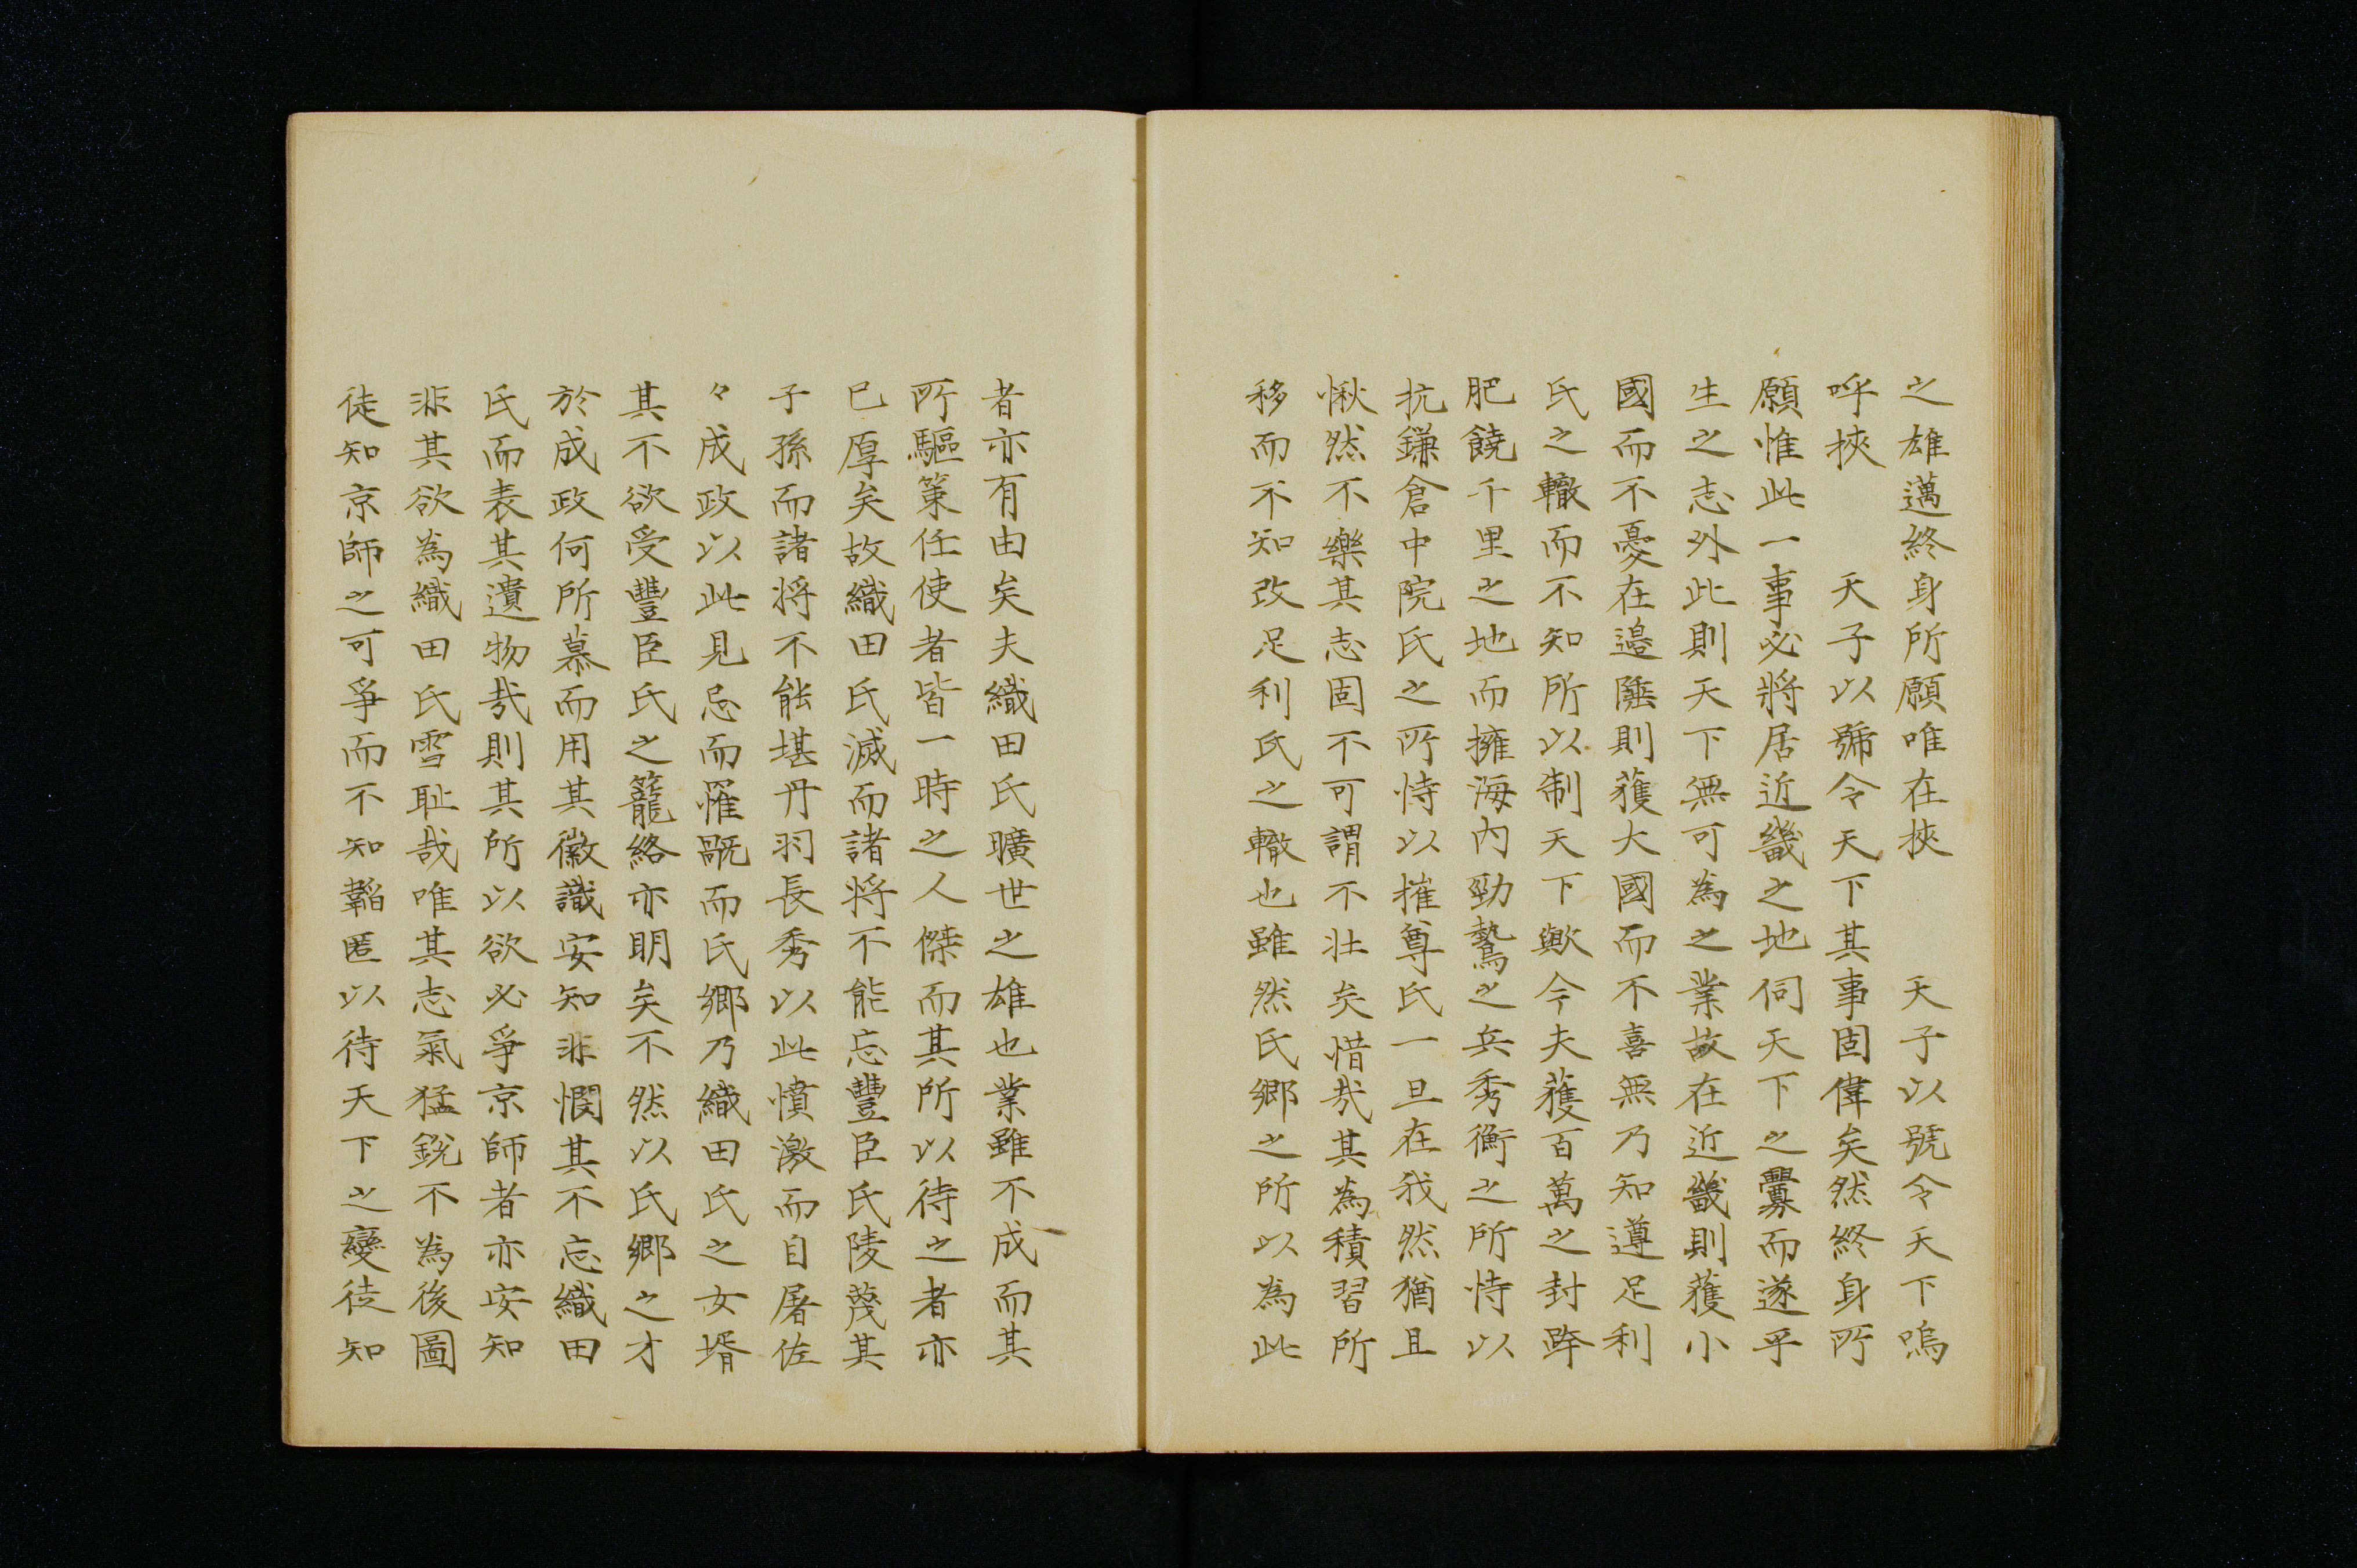 之雄邁終身所願唯在挾　　天子以號令天下嗚
呼挾　　天子以號令天下其事固偉矣然終身所
願惟此一事必將居近畿之地伺天下之釁而遂乎
生之志外此則天下無可為之業故在近畿則蒦小
國而不憂在邊陲則蒦大國而不喜無乃知遵足利
氏之轍而不知所以制天下歟今夫蒦百萬之封跨
肥饒千里之地而擁海内勁鷙之兵秀衡之所恃以
抗鎌倉中院氏之所恃以摧尊氏一旦在我然猶且
愀然不樂其志固不可謂不壮矣惜哉其為積習所
移而不知改足利氏之轍也雖然氏郷之所以為此
者亦有由矣夫織田氏曠世之雄也業雖不成而其
所驅策任使者皆一時之人傑而其所以待之者亦
已厚矣故織田氏滅而諸将不能忘豐臣氏陵蔑其
子孫而諸将不能堪丹羽長秀以此憤激而自屠佐
々成政以此見忌而罹戮而氏郷乃織田氏之女壻
其不欲受豐臣氏之籠絡亦明矣不然以氏郷之才
於成政何所慕而用其徽識安知非憫其不忘織田
氏而表其遺物哉則其所以欲必爭京師者亦安知
非其欲為織田氏雪耻哉唯其志氣猛鋭不為後圖
徒知京師之可爭而不知韜匿以待天下之變徒知